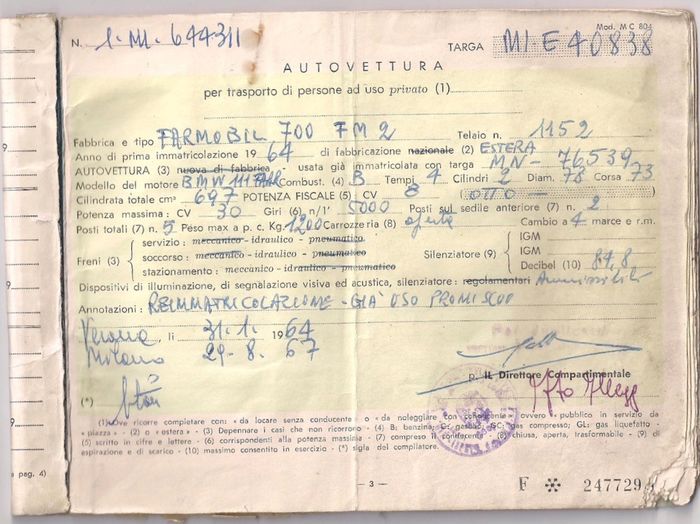 Mod. M C 804
N. 1. MI. 644311 TARGA MI. E 40838
AUTOVETTURA
per trasporto di persone ad uso privato (1)
Fabbrica e tipo FARMOBIL 700 FM2 Telaio n. 1152
Anno di prima immatricolazione 1964 di fabbricazione nazionale (2) ESTERA
AUTOVETTURA (3) nuova di fabbrica - usata già immatricolata con targa MN- 76539
Modello del motore BMW Combust. (4) B Tempi 4 Cilindri 2 Diam. 78 Corsa 73
Cilindrata totale cm³ 697 POTENZA FISCALE (5) CV 8 (OTTO)
Potenza massima: CV 30 Giri (6) n/1' 5000 Posti sul sedile anteriore (7) n. 2
Posti totali (7) n. 5 Peso max a p. c. Kg. 1200 Carrozzeria (8) aperta Cambio a 4 marce e r.m.
Freni (3) servizio: meccanico - idraulico - pneumatico
soccorso: meccanico - idraulico - pneumatico
stazionamento: meccanico - idraulico - pneumatico
Silenziatore (9) IGM
IGM
Decibel (10) 84,8
Dispositivi di illuminazione, di segnalazione visiva ed acustica, silenziatore: regolamentari Ammissibili
Annotazioni: REIMMATRICOLAZIONE - GIÀ USO PROMISCUO
Verona, lì 31.1. 1964
Milano 29-8. 67
p. IL Direttore Compartimentale
(*)
(1) ove ricorre completare con: «da locare senza conducente» o «da noleggiare con conducente» ovvero «pubblico in servizio da
«piazza» - (2) o «estera» - (3) Depennare i casi che non ricorrono - (4) B: benzina; G: gasolio; GC: gas compresso; GL: gas liquefatto -
(5) scritto in cifre e lettere - (6) corrispondenti alla potenza massima - (7) compreso il conducente - (8) chiusa, aperta, trasformabile - (9) di
aspirazione e di scarico - (10) massimo consentito in esercizio - (*) sigla del compilatore.
a pag. 4)
— 3 —
F ※ 2477293